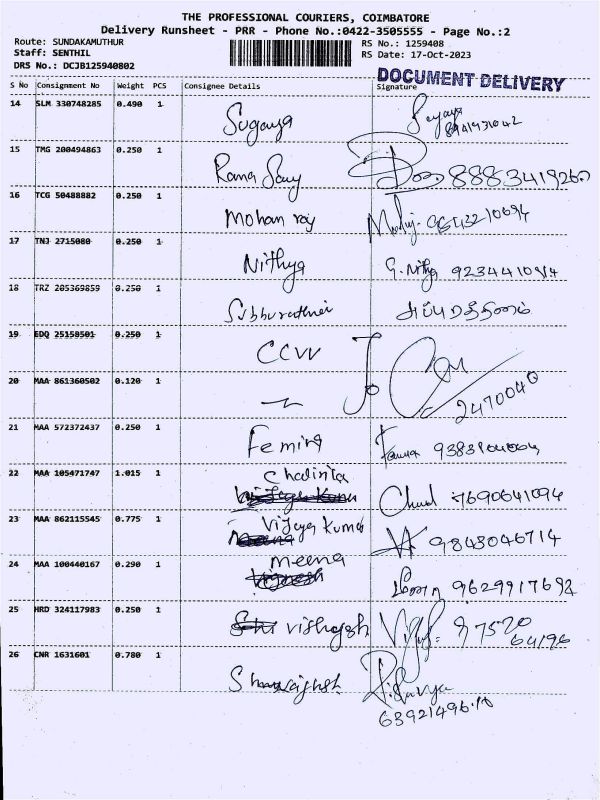 THE PROFESSIONAL COURIERS, COIMBATORE
Delivery Runsheet - PRR - Phone No.:0422-3505555 - Page No.:2
Route: SUNDAKAMUTHUR
RS No.: 1259408
Staff: SENTHIL
RS Date: 17-Oct-2023
DRS No.: DCJB125940802
DOCUMENT DELIVERY
S No Consignment No Weight PCS Consignee Details Signature
14 SLM 330748285 0.490 1 Suganya
15 TMG 200494863 0.250 1 Rama 8883419260
16 TCG 50488882 0.250 1 Mohan raj
17 TNJ 2715080 0.250 1 Nithya G. Nithya
18 TRZ 205369859 0.250 1 Subburathnei சுப்புரத்தினம்
19 EDQ 25158501 0.250 1 CCVV
20 MAA 861360502 0.120 1 2470040
21 MAA 572372437 0.250 1 Femina
22 MAA 105471747 1.015 1 7690641094
23 MAA 862115545 0.775 1 Vijaya Kumar 9843046714
24 MAA 100440167 0.290 1 meena 9629917692
25 HRD 324117983 0.250 1 97520
64196
26 CNR 1631601 0.780 1